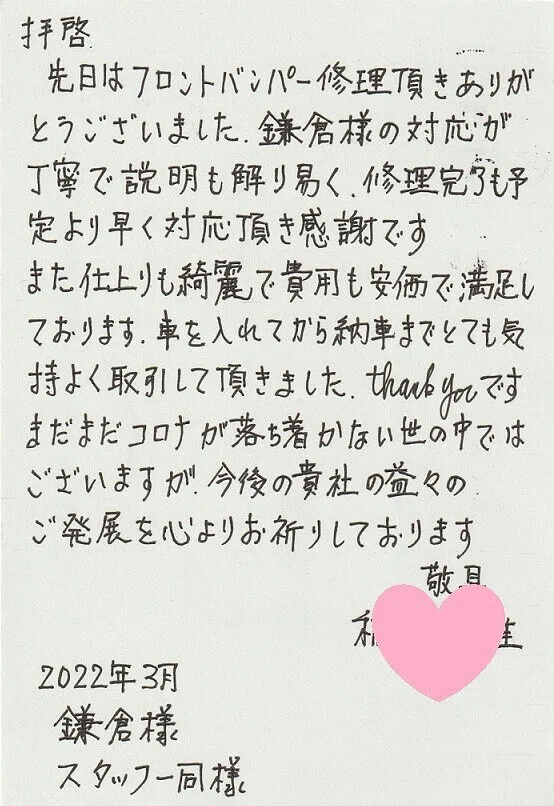 拝啓
先日はフロントバンパー修理頂きありが
とうございました. 鎌倉様の対応が
丁寧で説明も解り易く、修理完了も予
定より早く対応頂き感謝です
また仕上りも綺麗で費用も安価で満足し
ております. 車を入れてから納車までとても気
持よく取引して頂きました. thank youです
まだまだコロナが落ち着かない世の中では
ございますが. 今後の貴社の益々の
ご発展を心よりお祈りしております
敬具
2022年3月
鎌倉様
スタッフ一同様